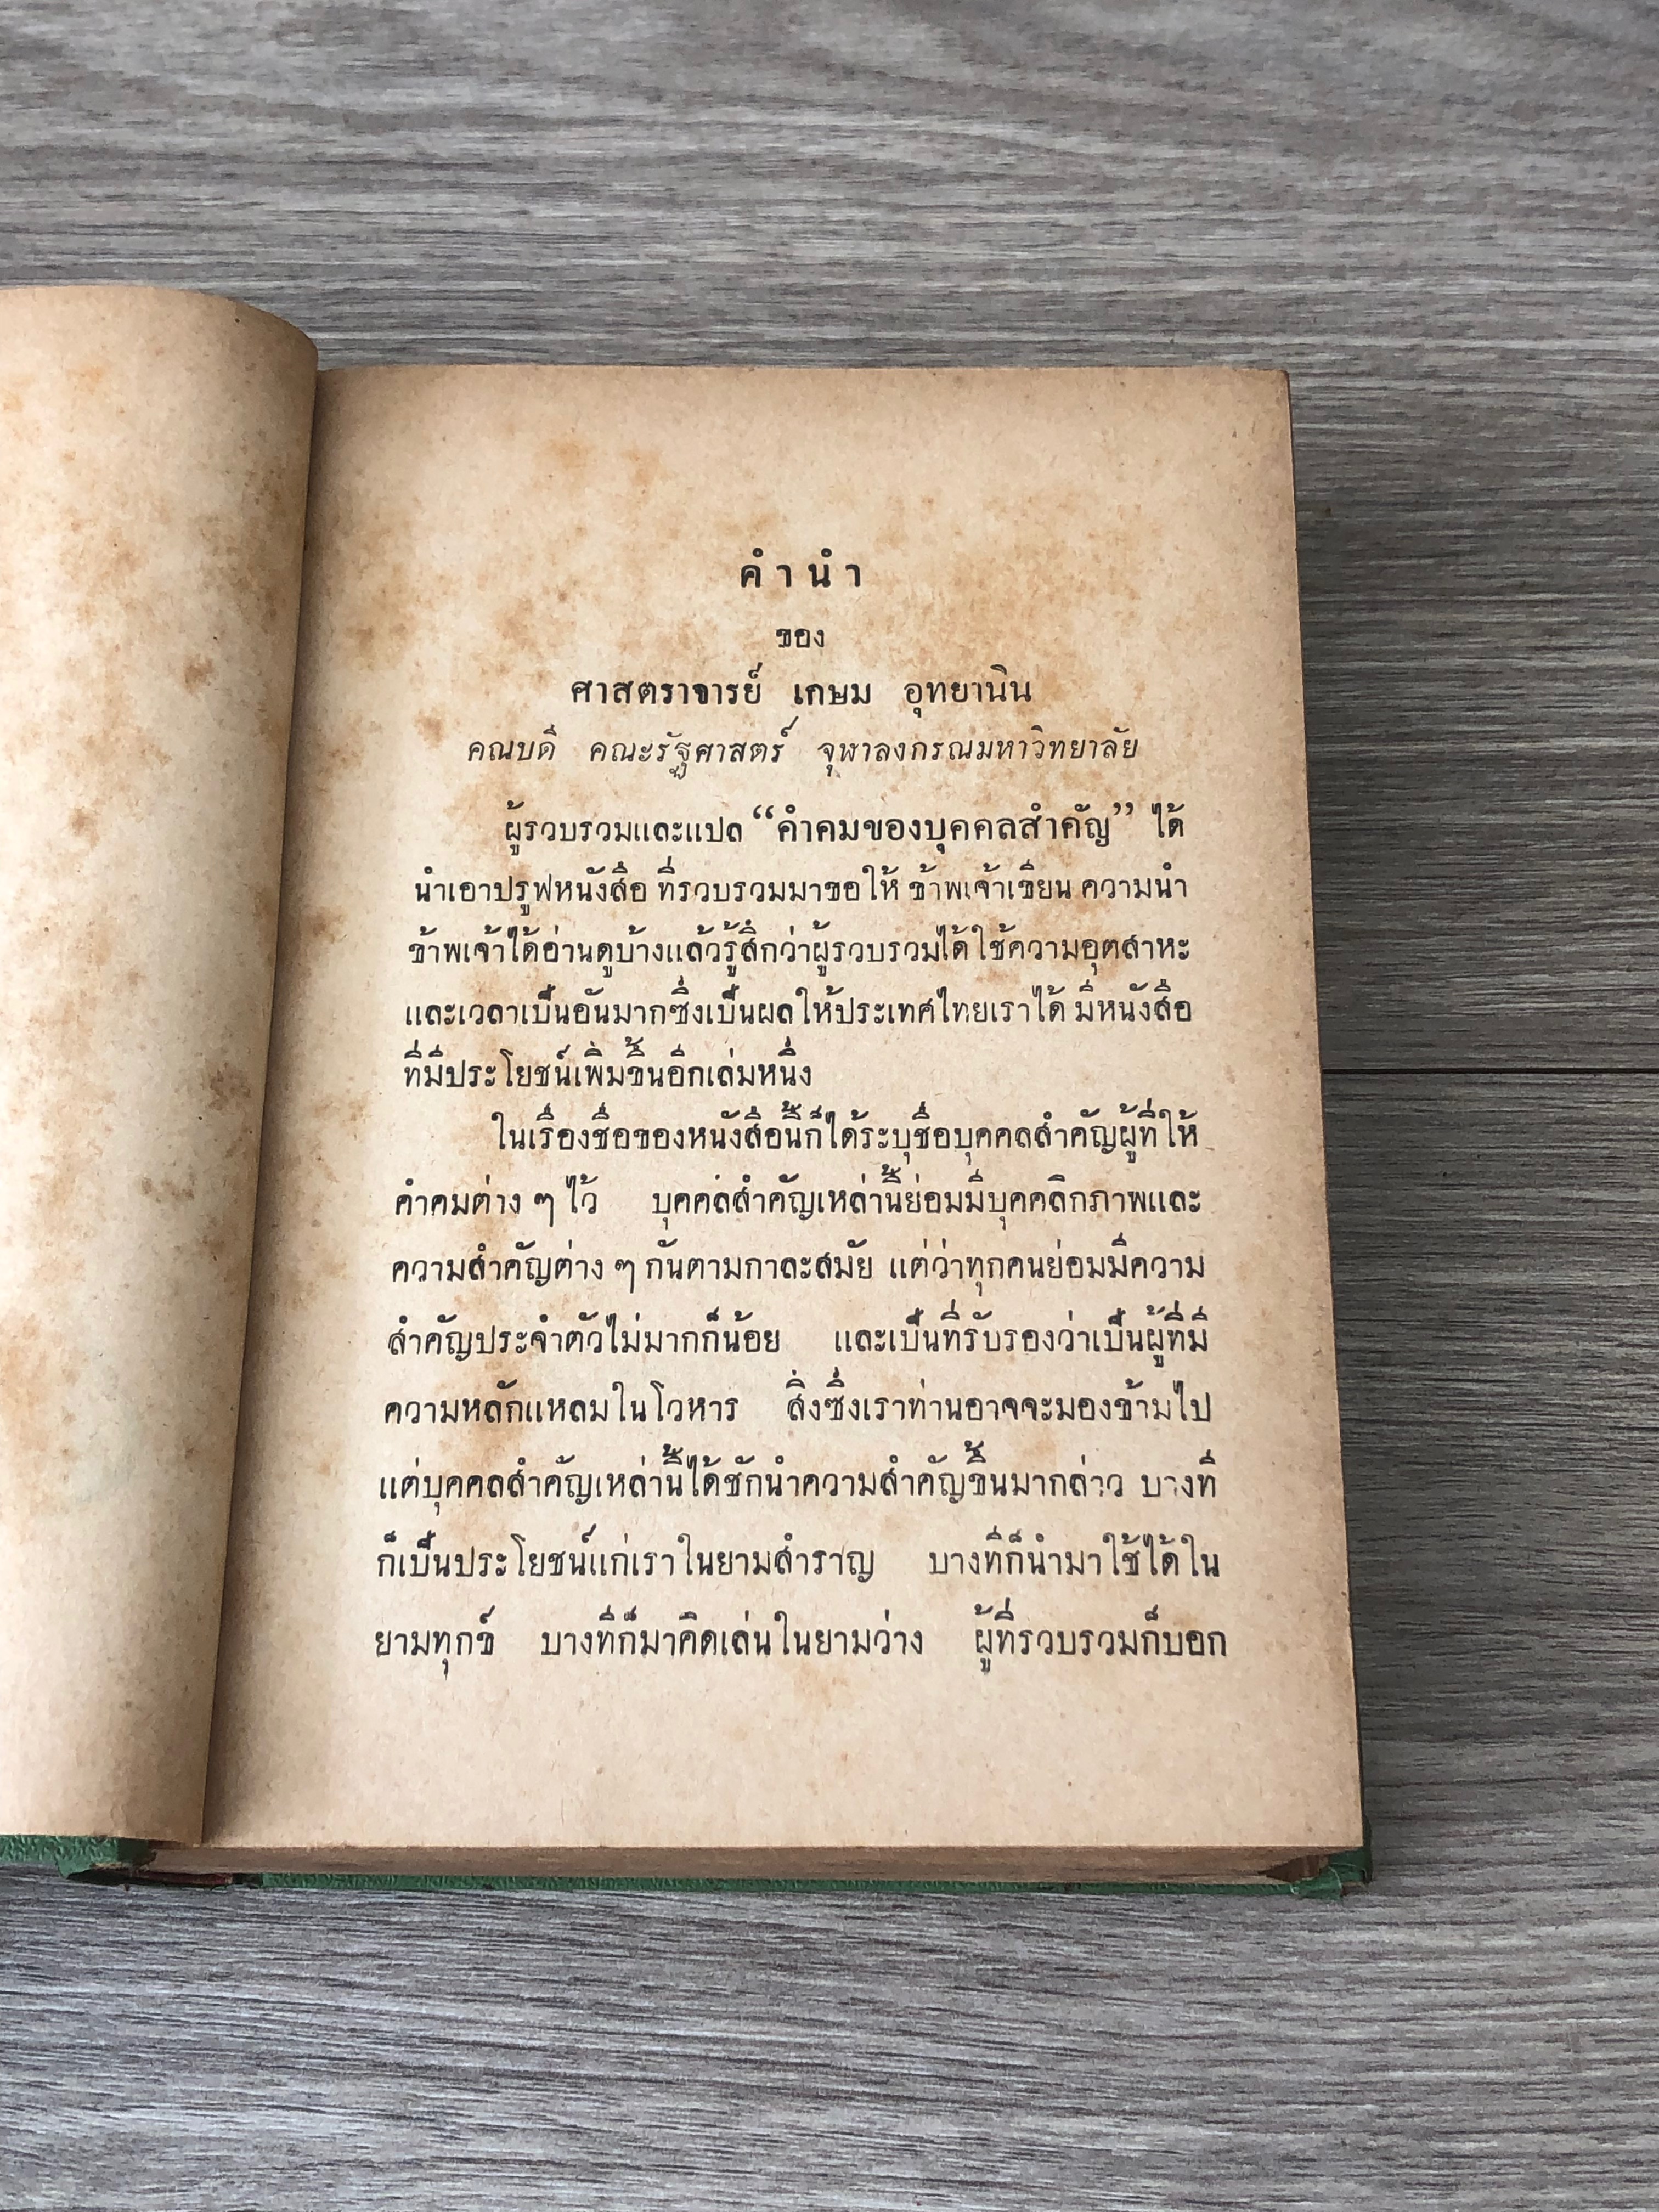 คำนำ
ของ
ศาสตราจารย์ เกษม อุทยานิน
คณบดี คณะรัฐศาสตร์ จุฬาลงกรณมหาวิทยาลัย
ผู้รวบรวมและแปล “คำคมของบุคคลสำคัญ” ได้
นำเอาปรูฟหนังสือ ที่รวบรวมมาขอให้ ข้าพเจ้าเขียน ความนำ
ข้าพเจ้าได้อ่านดูบ้างแล้วรู้สึกว่าผู้รวบรวมได้ใช้ความอุตสาหะ
และเวลาเป็นอันมากซึ่งเป็นผลให้ประเทศไทยเราได้ มีหนังสือ
ที่มีประโยชน์เพิ่มขึ้นอีกเล่มหนึ่ง
ในเรื่องชื่อของหนังสือนี้ก็ได้ระบุชื่อบุคคลสำคัญผู้ที่ให้
คำคมต่าง ๆ ไว้ บุคคลสำคัญเหล่านี้ย่อมมีบุคคลิกภาพและ
ความสำคัญต่าง ๆ กันตามกาละสมัย แต่ว่าทุกคนย่อมมีความ
สำคัญประจำตัวไม่มากก็น้อย และเป็นที่รับรองว่าเป็นผู้ที่มี
ความหลักแหลมในโวหาร สิ่งซึ่งเราท่านอาจจะมองข้ามไป
แต่บุคคลสำคัญเหล่านี้ได้ชักนำความสำคัญขึ้นมากล่าว บางที
ก็เป็นประโยชน์แก่เราในยามสำราญ บางทีก็นำมาใช้ได้ใน
ยามทุกข์ บางทีก็มาคิดเล่นในยามว่าง ผู้ที่รวบรวมก็บอก